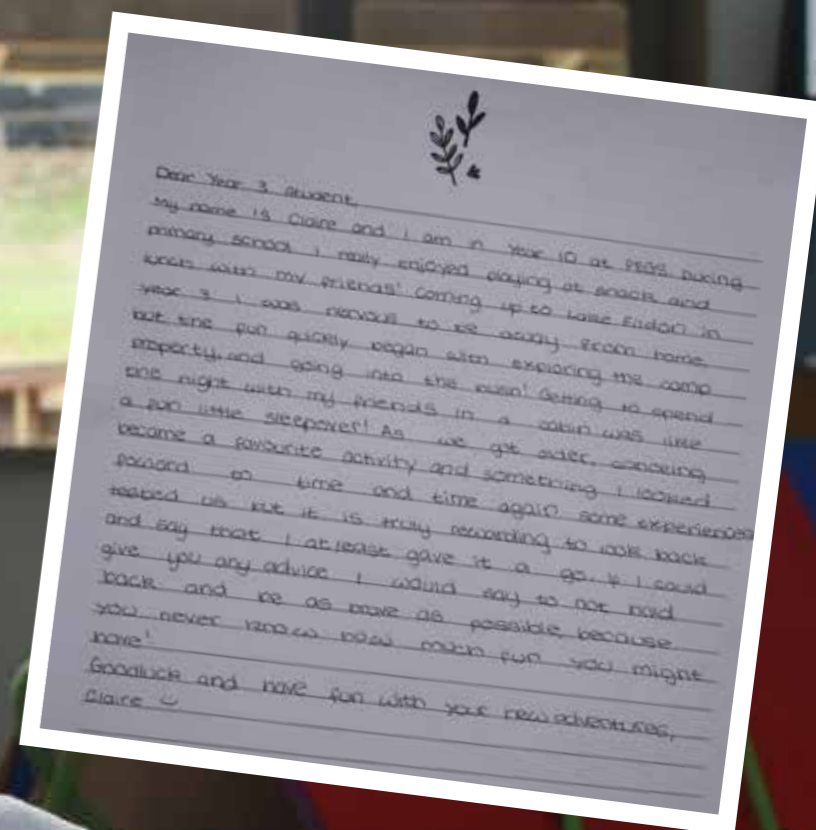 Dear Year 3 student,
My name is Claire and I am in Year 10 at PEGS. During
primary school I really enjoyed playing at snack and
lunch with my friends! Coming up to Lake Eildon in
year 3 I was nervous to be away from home
but the fun quickly began with exploring the camp
property, and going into the bush! Getting to spend
the night with my friends in a cabin was like
a fun little sleepover! As we got older, canoeing
became a favourite activity and something I looked
forward to time and time again. Some experiences
tested us but it is truly rewarding to look back
and say that I at least gave it a go. If I could
give you any advice I would say to not hold
back and be as brave as possible, because
you never know how much fun you might
have!
Goodluck and have fun with your new adventures,
Claire